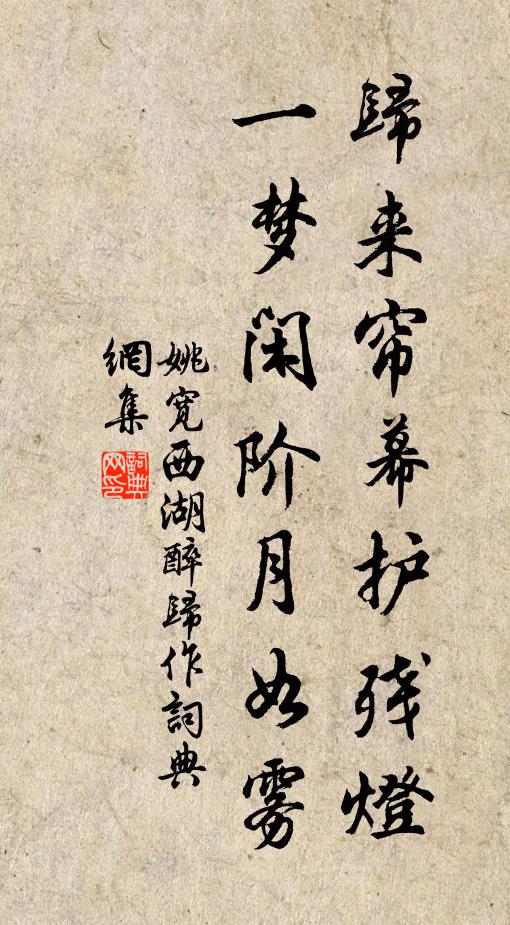 歸来帘幕护残燈
一梦闲阶月如雾
姚宽西湖醉歸作詞典
網集
詞典
网印